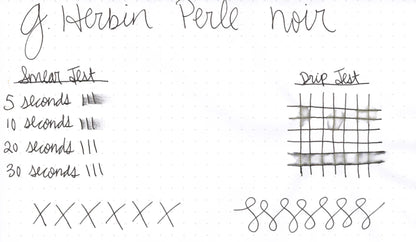 J. Herbin Perle noir
Smear Test
5 seconds
10 seconds
20 seconds
30 seconds
Drip Test
X X X X X X